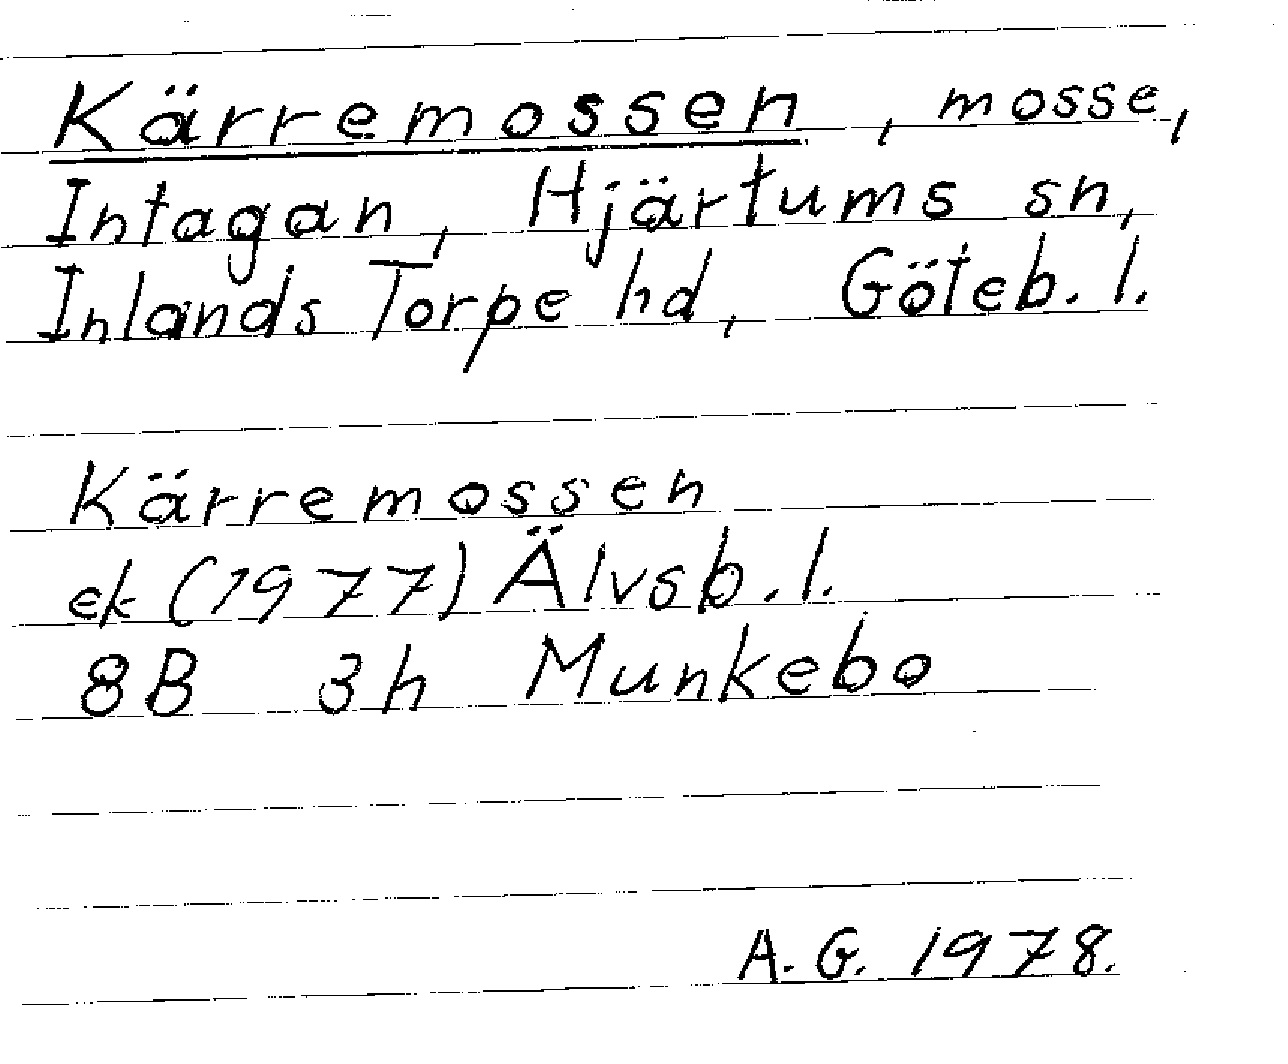 Kärremossen, mosse,
Intagan, Hjärtums sn,
Inlands Torpe hd, Göteb. l.
Kärremossen
ek (1977) Älvsb. l.
8B 3h Munkebo
A. G. 1978.